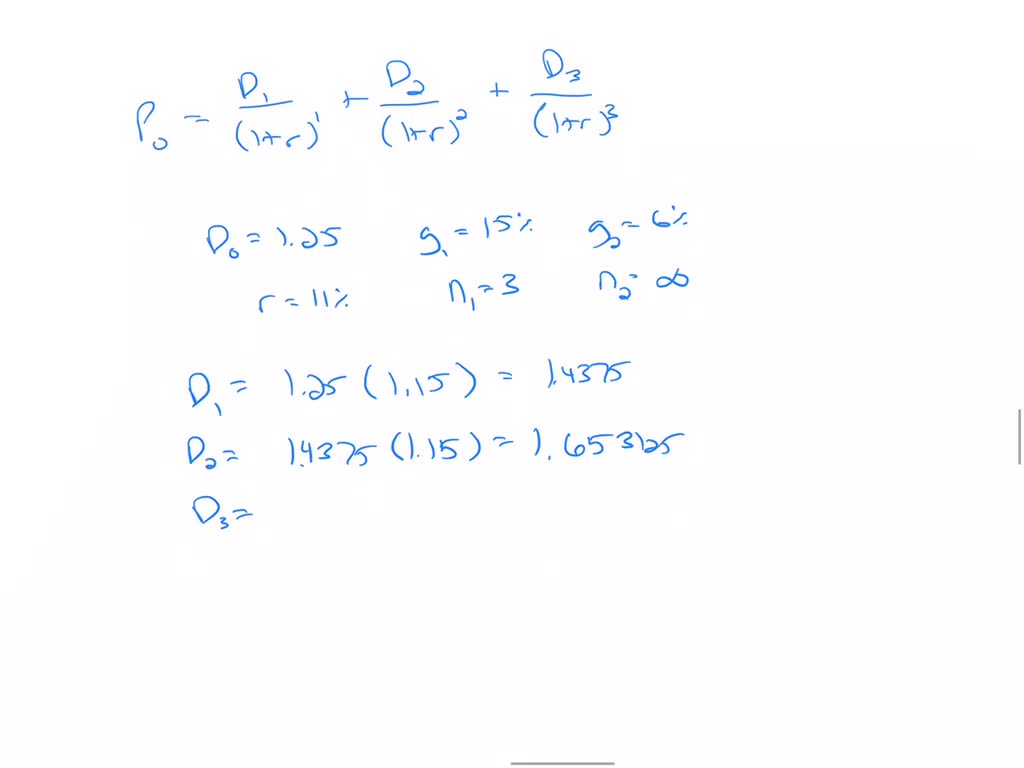 P₀ = D₁/(1+r)¹ + D₂/(1+r)² + D₃/(1+r)³
D₀ = 1.25 g₁ = 15% g₂ = 6%
r = 11% n₁ = 3 n₂ = ∞
D₁ = 1.25 (1.15) = 1.4375
D₂ = 1.4375 (1.15) = 1.653125
D₃ =